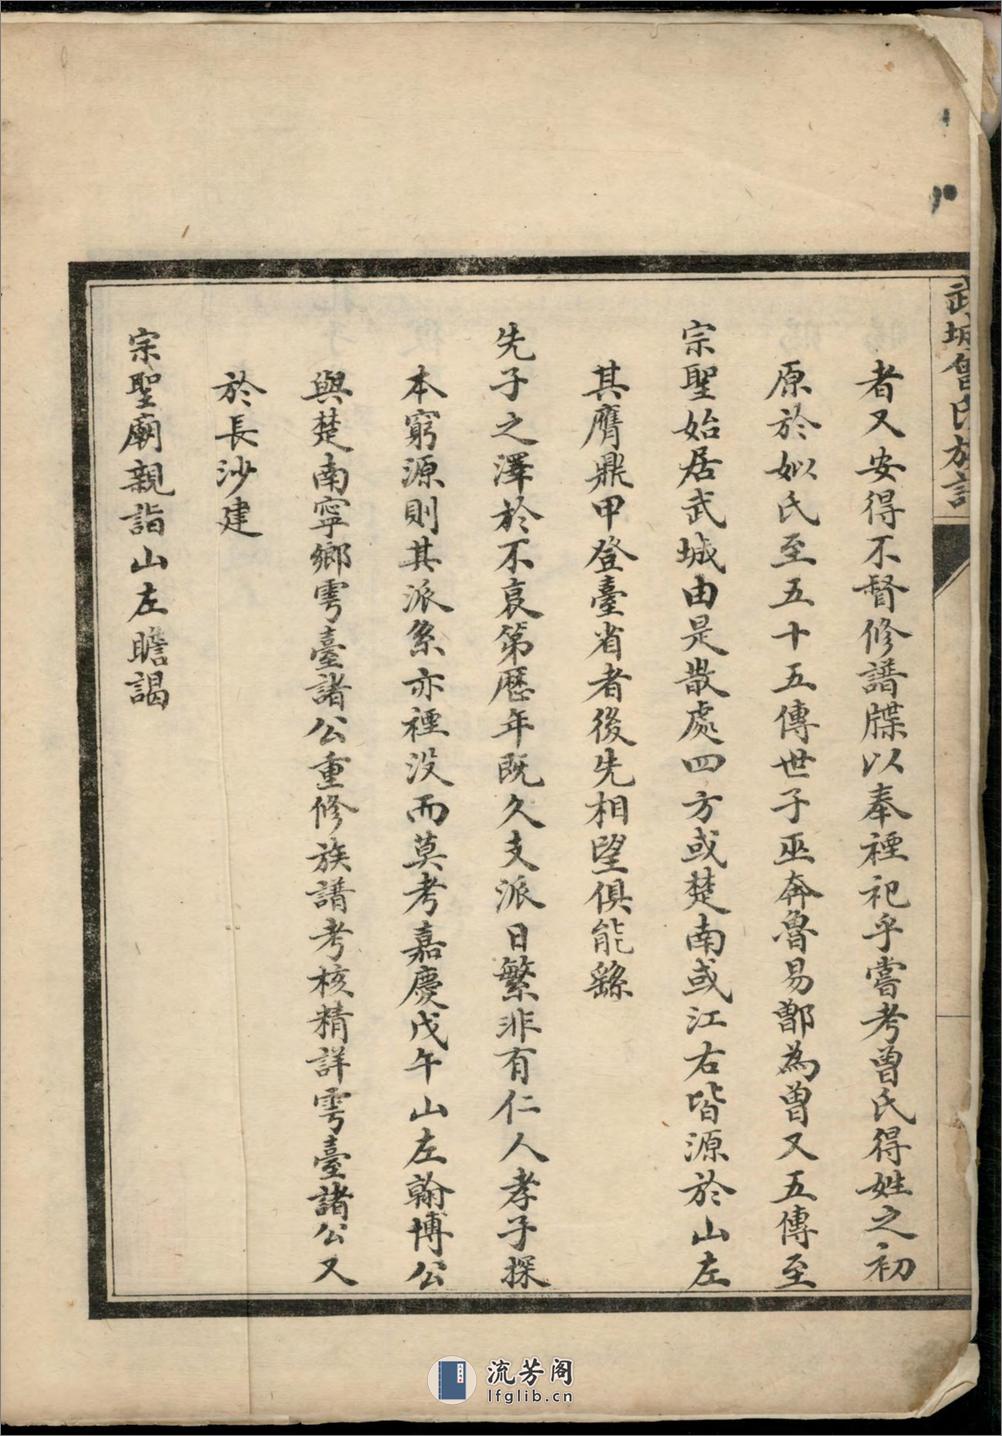 武城曾氏族譜
者又安得不督修譜牒以奉禋祀乎嘗考曾氏得姓之初
原於姒氏至五十五傳世子巫奔魯易鄫為曾又五傳至
宗聖始居武城由是散處四方或楚南或江右皆源於山左
其膺鼎甲登臺省者後先相望俱能繇
先子之澤於不衰第歷年既久支派日繁非有仁人孝子探
本窮源則其派系亦禋没而莫考嘉慶戊午山左翰博公
與楚南寧鄉雩臺諸公重修族譜考核精詳雩臺諸公又
於長沙建
宗聖廟親詣山左瞻謁
流芳阁
lfglib.cn